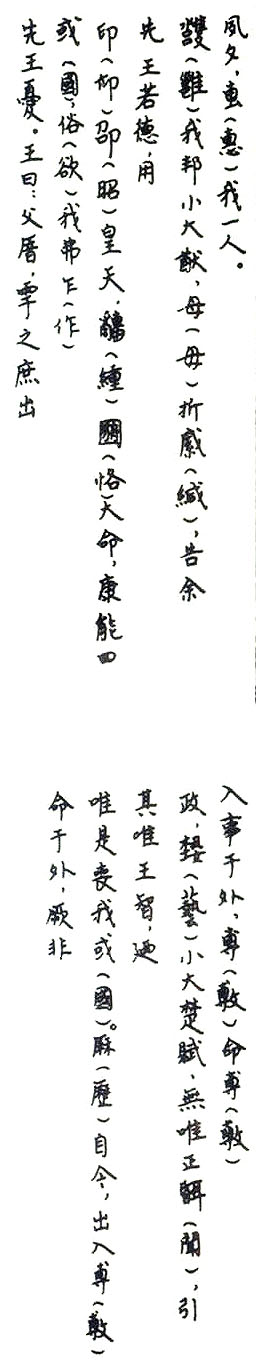 夙夕,叀(惠)我一人。
雝(雝)我邦小大猷,毋(毋)折緘(緘),告余
先王若德,用
印(仰)卲(昭)皇天,緟(緟)圝(恪)大命,康能四
或(國),俗(欲)我弗乍(作)
先王憂。王曰:父厝,雩之庶出
入事于外,尃(敷)命尃(敷)
政,埶(藝)小大楚賦,無唯正䎽(聞),引
其唯王智,迺
唯是喪我或(國)。厤(歷)自今,出入尃(敷)
命于外,厥非